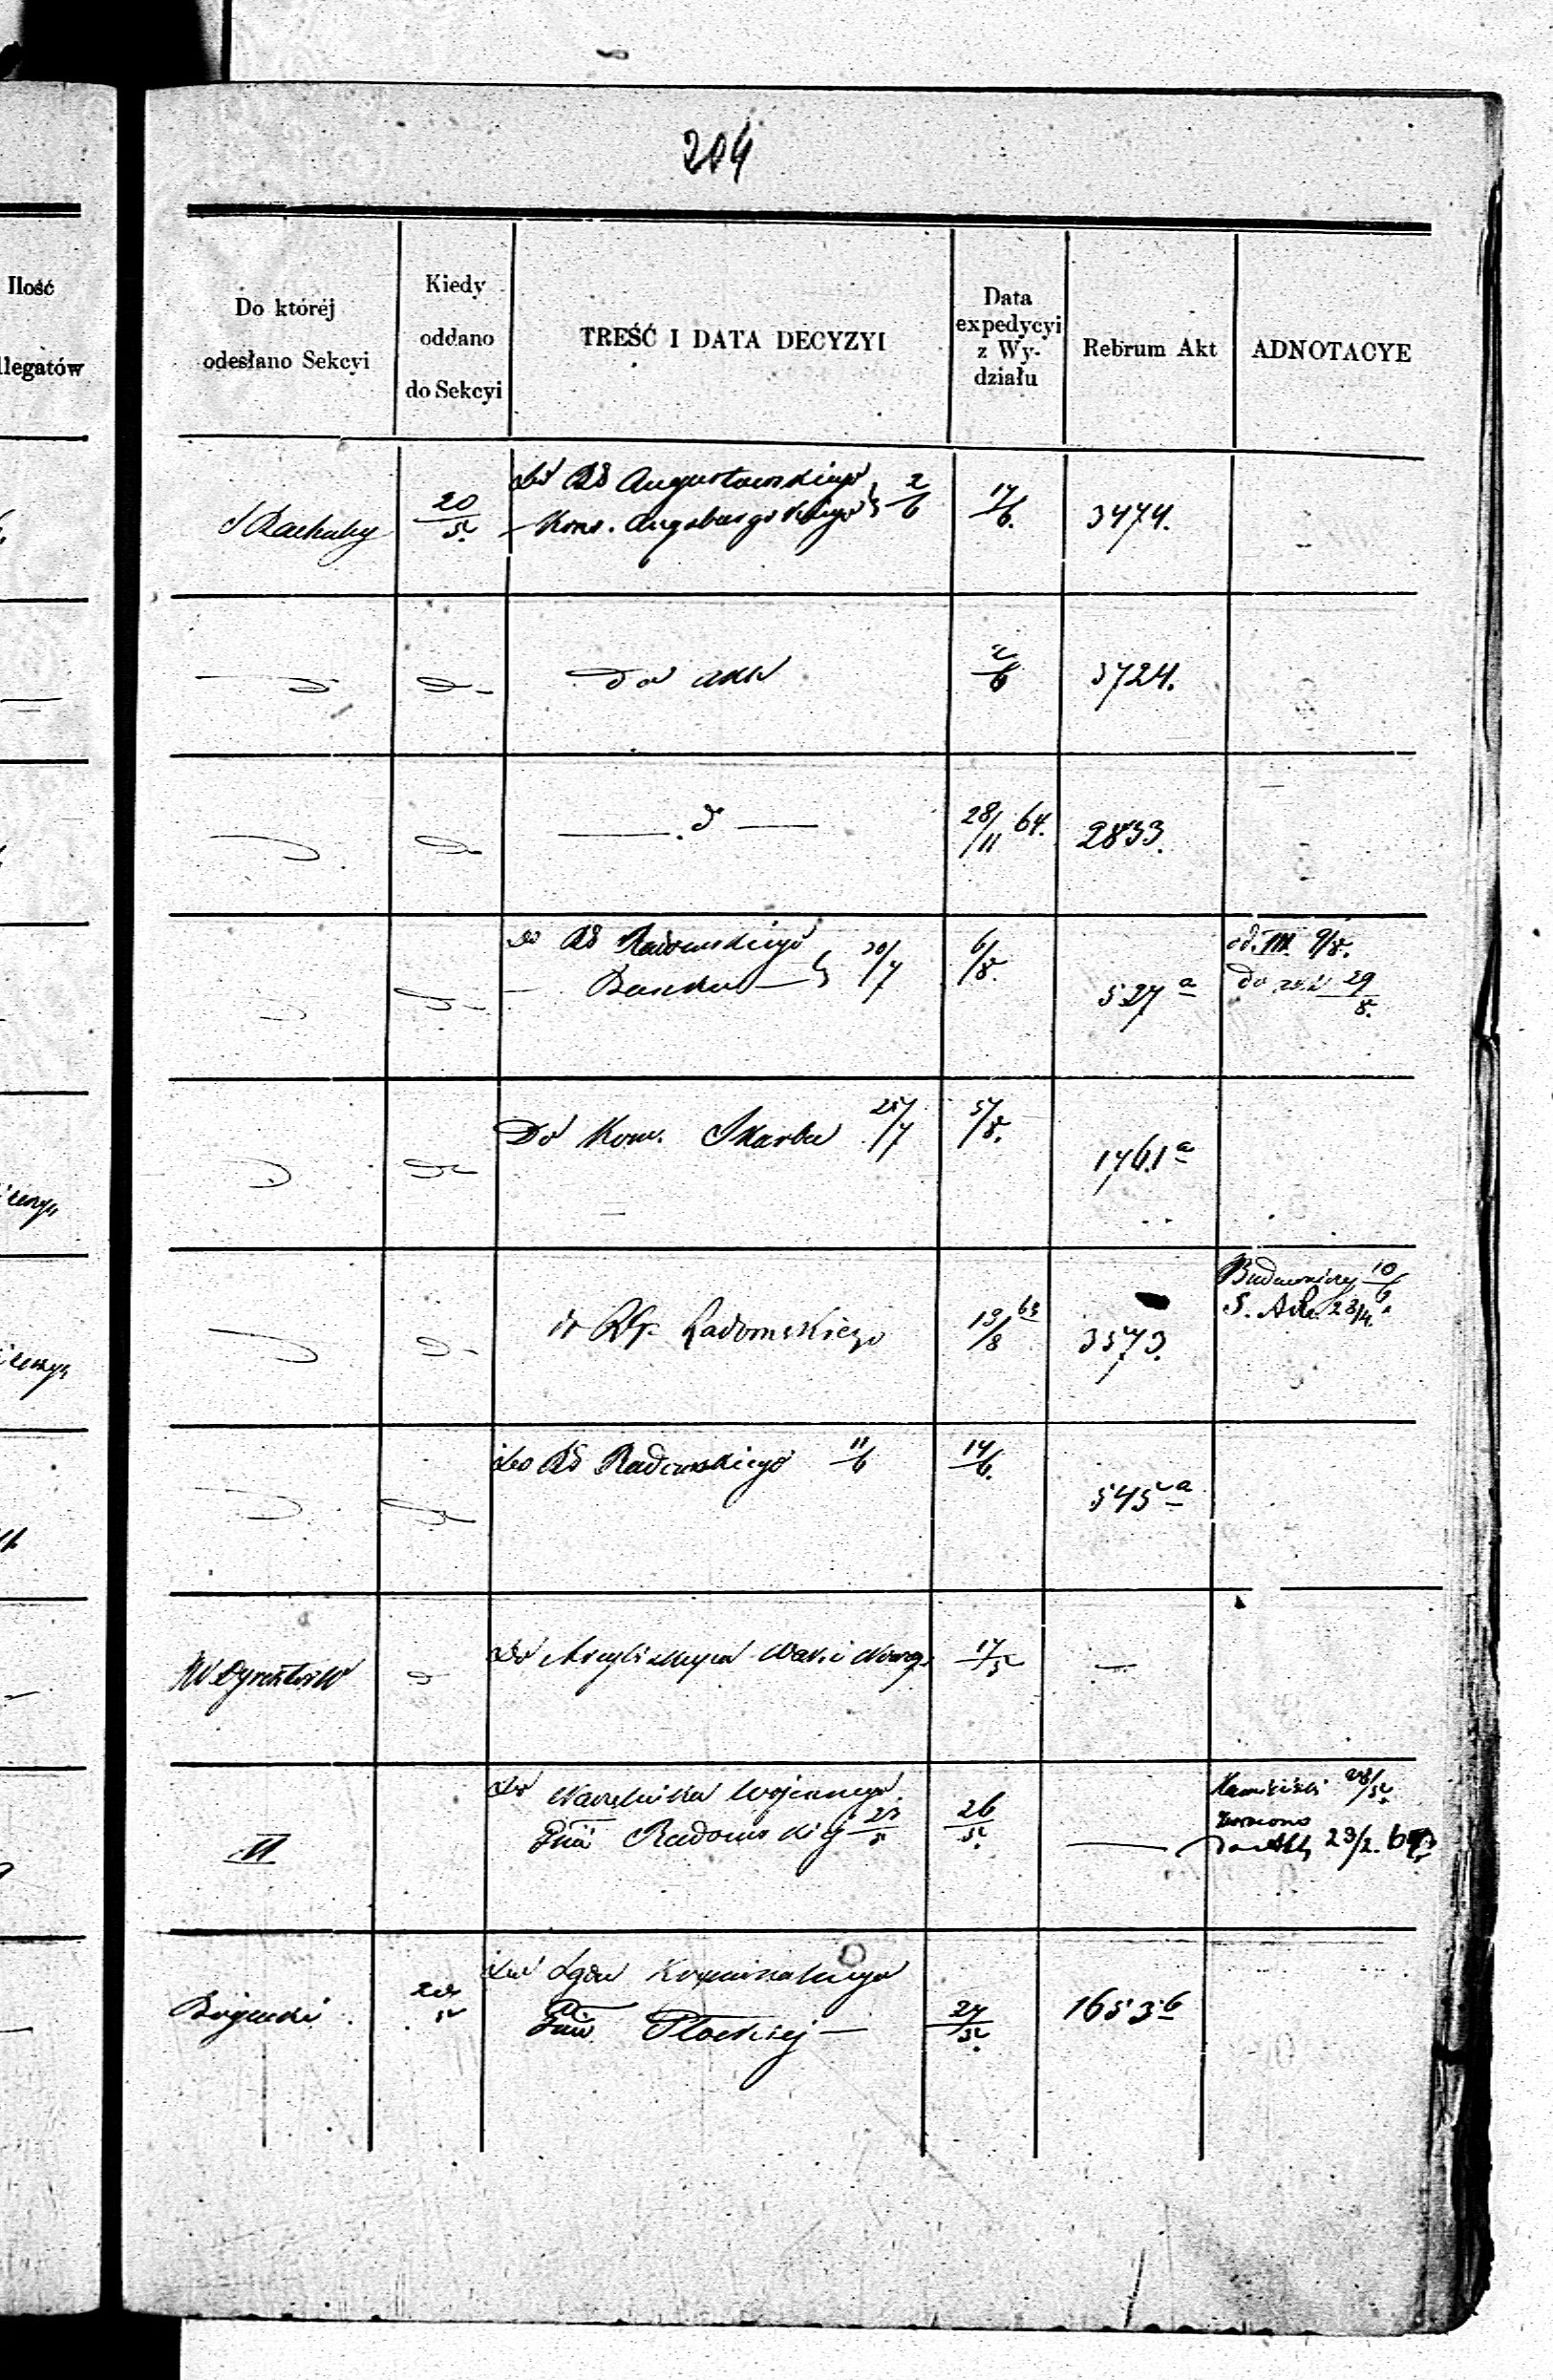 204
Ilość
llegatów
Do której
odesłano Sekcyi
Kiedy
oddano
do Sekcyi
TREŚĆ I DATA DECYZYI
Data
expedycyi
z Wy-
działu
Rebrum Akt
ADNOTACYE
S Rachuby
20/5.
do RG Augustowskiego
Kons. Augsburgskiego 2/6
17/6.
3474.
do akt
2/6
3724.
d
28/11 64.
2833.
do RG Radomskiego
Banku 30/7
6/8.
527 a
od. III. 9/8.
do akt 29/8.
Do Kom. Skarbu 25/7
5/8.
1761 a
do RG. Radomskiego
19/8 63
3573.
Budowniczy 10/6
do RG Radomskiego 11/6
14/6.
545 a
W Dyrektor
17/5
do Naczelnika Wojennego
Gnii Radomskiej 23/5
26/5.
VI
28/5.
zwrócono
do Akt 23/2.
Bogucki
do Sądu Kryminalnego
Gnii Płockiej
27/5.
1653 b